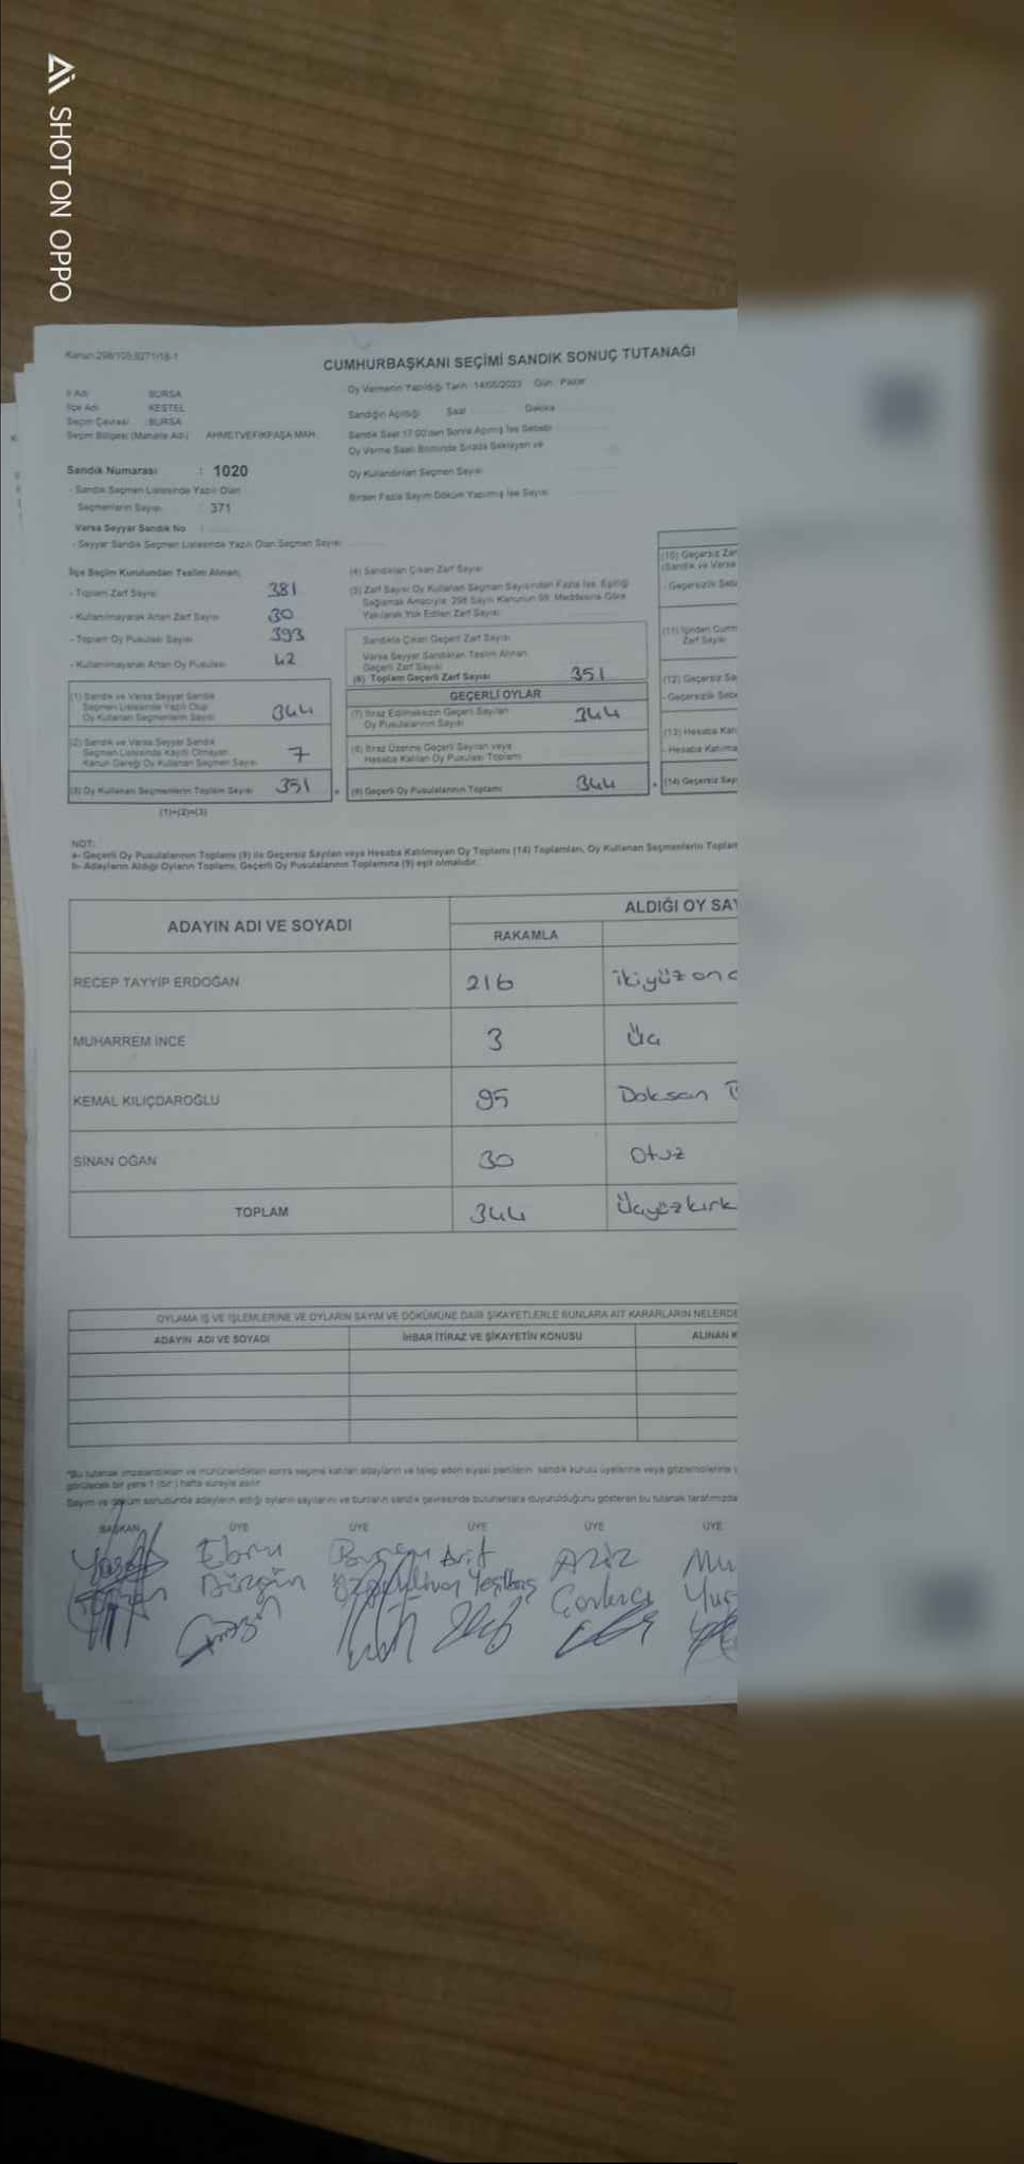 SHOT ON OPPO
Kanun:298/105,6271/18-1
CUMHURBAŞKANI SEÇİMİ SANDIK SONUÇ TUTANAĞI
İl Adı BURSA
İlçe Adı KESTEL
Seçim Çevresi BURSA
Seçim Bölgesi (Mahalle Adı) AHMETVEFİKPAŞA MAH.
Oy Vermenin Yapıldığı Tarih 14/05/2023 Gün Pazar
Sandığın Açıldığı Saat Dakika
Sandık Saat 17:00'den Sonra Açılmış İse Sebebi
Oy Verme Saati Bitiminde Sırada Bekleyen ve
Oy Kullandırılan Seçmen Sayısı
Birden Fazla Sayım Döküm Yapılmış İse Sayısı
Sandık Numarası : 1020
- Sandık Seçmen Listesinde Yazılı Olan
Seçmenlerin Sayısı 371
Varsa Seyyar Sandık No :
- Seyyar Sandık Seçmen Listesinde Yazılı Olan Seçmen Sayısı
İlçe Seçim Kurulundan Teslim Alınan;
- Toplam Zarf Sayısı 381
- Kullanılmayarak Artan Zarf Sayısı 30
- Toplam Oy Pusulası Sayısı 393
- Kullanılmayarak Artan Oy Pusulası 42
(1) Sandık ve Varsa Seyyar Sandık
Seçmen Listesinde Yazılı Olup
Oy Kullanan Seçmenlerin Sayısı 344
(2) Sandık ve Varsa Seyyar Sandık
Seçmen Listesinde Kayıtlı Olmayan
Kanun Gereği Oy Kullanan Seçmen Sayısı 7
(3) Oy Kullanan Seçmenlerin Toplam Sayısı 351
(1)+(2)=(3)
(4) Sandıktan Çıkan Zarf Sayısı
(5) Zarf Sayısı Oy Kullanan Seçmen Sayısından Fazla İse, Eşitliği
Sağlamak Amacıyla, 298 Sayılı Kanunun 98. Maddesine Göre
Yakılarak Yok Edilen Zarf Sayısı
Sandıkta Çıkan Geçerli Zarf Sayısı
Varsa Seyyar Sandıktan Teslim Alınan
Geçerli Zarf Sayısı
(6) Toplam Geçerli Zarf Sayısı 351
GEÇERLİ OYLAR
(7) İtiraz Edilmeksizin Geçerli Sayılan
Oy Pusulalarının Sayısı 344
(8) İtiraz Üzerine Geçerli Sayılan veya
Hesaba Katılan Oy Pusulası Toplamı
(9) Geçerli Oy Pusulalarının Toplamı 344
(10) Geçersiz Zar
(Sandık ve Varsa
- Geçersizlik Seb
(11) İçinden Cum
Zarf Sayısı
(12) Geçersiz Sa
- Geçersizlik Sebe
(13) Hesaba Kat
- Hesaba Katılma
(14) Geçersiz Say
NOT:
a- Geçerli Oy Pusulalarının Toplamı (9) ile Geçersiz Sayılan veya Hesaba Katılmayan Oy Toplamı (14) Toplamları, Oy Kullanan Seçmenlerin Toplam
b- Adayların Aldığı Oyların Toplamı, Geçerli Oy Pusulalarının Toplamına (9) eşit olmalıdır.
ADAYIN ADI VE SOYADI
ALDIĞI OY SAY
RAKAMLA
RECEP TAYYİP ERDOĞAN 216 ikiyüz ona
MUHARREM İNCE 3 Üç
KEMAL KILIÇDAROĞLU 95 Doksan
SİNAN OĞAN 30 Otuz
TOPLAM 344 Üçyüzkırk
OYLAMA İŞ VE İŞLEMLERİNE VE OYLARIN SAYIM VE DÖKÜMÜNE DAİR ŞİKAYETLERLE BUNLARA AİT KARARLARIN NELERDE
ADAYIN ADI VE SOYADI İHBAR İTİRAZ VE ŞİKAYETİN KONUSU ALINAN K
*Bu tutanak imzalandıktan ve mühürlendikten sonra seçime katılan adayların ve talep eden siyasi partilerin sandık kurulu üyelerine veya gözlemcilerine
görülecek bir yere 1 (bir) hafta süreyle asılır.
Sayım ve döküm sonucunda adayların aldığı oyların sayılarını ve bunların sandık çevresinde bulunanlara duyurulduğunu gösteren bu tutanak tarafımızda
BAŞKAN ÜYE ÜYE ÜYE ÜYE ÜYE
Ebru Arif Aziz Mu
Yeşilbaş